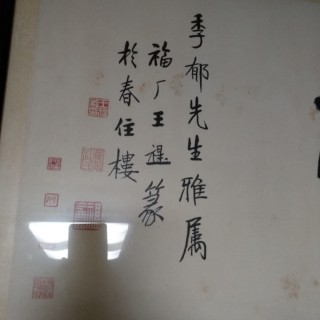 季郁先生雅属
福厂王禔篆
於春住樓